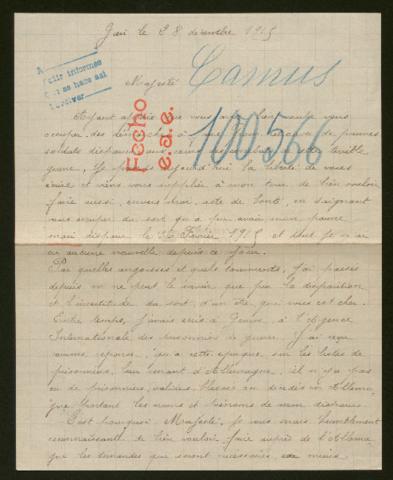 le 28 décembre 1915
A
Pedir informes
Que se hace así
Archiver
Majesté
Camus
100566
Fecho
e.s.e.
Ayant appris que vous avez
occuper des démarches à
soldats disparus
guerre, Je prends aujourd'hui la liberté de vous
écrire et viens vous supplier à mon tour de bien vouloir
faire aussi, envers moi, acte de bonté, en daignant
vous occuper du sort qu'a pu avoir mon pauvre
mari disparu le Février 1915 et dont je n'ai
eu aucune nouvelle depuis ce jour.
Par quelles angoisses et quels tourments, j'ai passés
depuis on ne peut le savoir que par la disparition
et l'incertitude du sort, d'un être qui vous est cher.
Entre temps, j'avais écrit à Genève, à l'Agence
Internationale des prisonniers de guerre. J'ai reçu
comme réponse, qu'à cette époque, sur les listes de
prisonniers, leur venant d'Allemagne, il n'y a pas
eu de prisonniers, valides, blessés ou décédés en Allema-
gne portant les noms et prénoms de mon disparu.
C'est pourquoi, Majesté, je vous serais humblement
reconnaissante de bien vouloir, faire auprès de l'Allema-
gne les demandes que seront nécessaires,